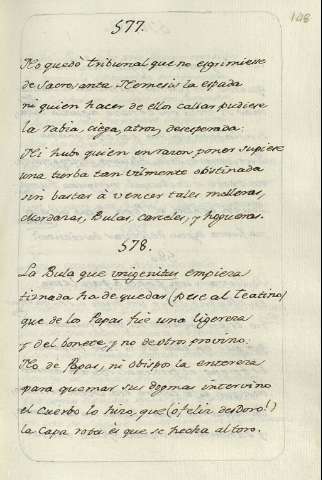 148
577.
No quedò tribunal que no esgrimiesse
de Sacrosanta Nemesis la espada
ni quien hacer de ellos callar pudiese
la rabia, ciega, atroz, desesperada:
Ni hubo quien en razon poner supiese
una turba tan vilmente obstinada
sin bastar à vencer tales molleras,
Mordazas, Bulas, carceles, y hogueras.
578.
La Bula que unigenitus empieza
tiznada ha de quedar (pese al Teatino)
que de los Papas fue una ligereza
y del bonete, y no de otro provino:
No de Papas, ni obispos la entereza
para quemar sus dogmas intervino
el cuerbo lo hizo, que (ò feliz desdoro!)
la capa rota es que se hecha al toro.